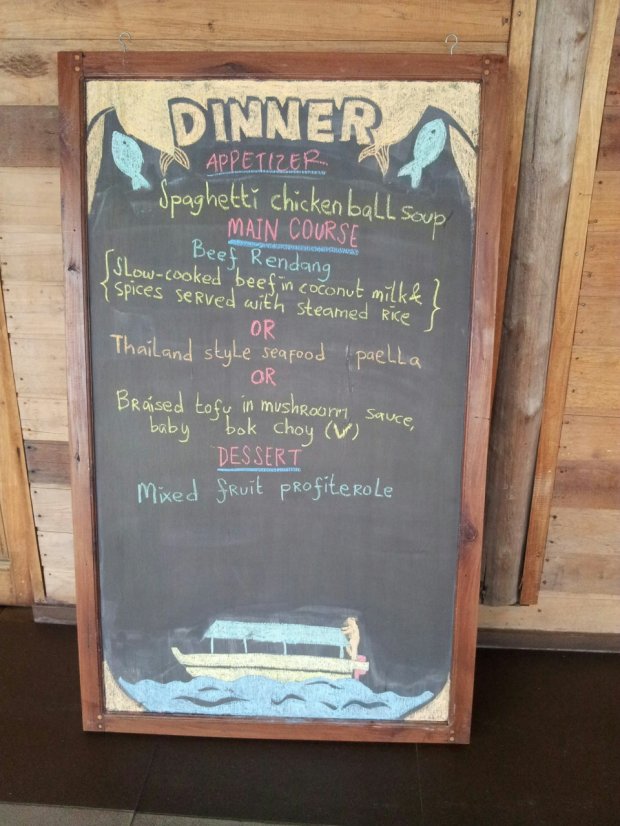 DINNER
APPETIZER
Spaghetti chicken ball soup
MAIN COURSE
Beef Rendang
{Slow-cooked beef in coconut milk &
spices served with steamed Rice}
OR
Thailand style seafood paella
OR
Braised tofu in mushroom sauce,
baby bok choy (V)
DESSERT
Mixed fruit profiterole